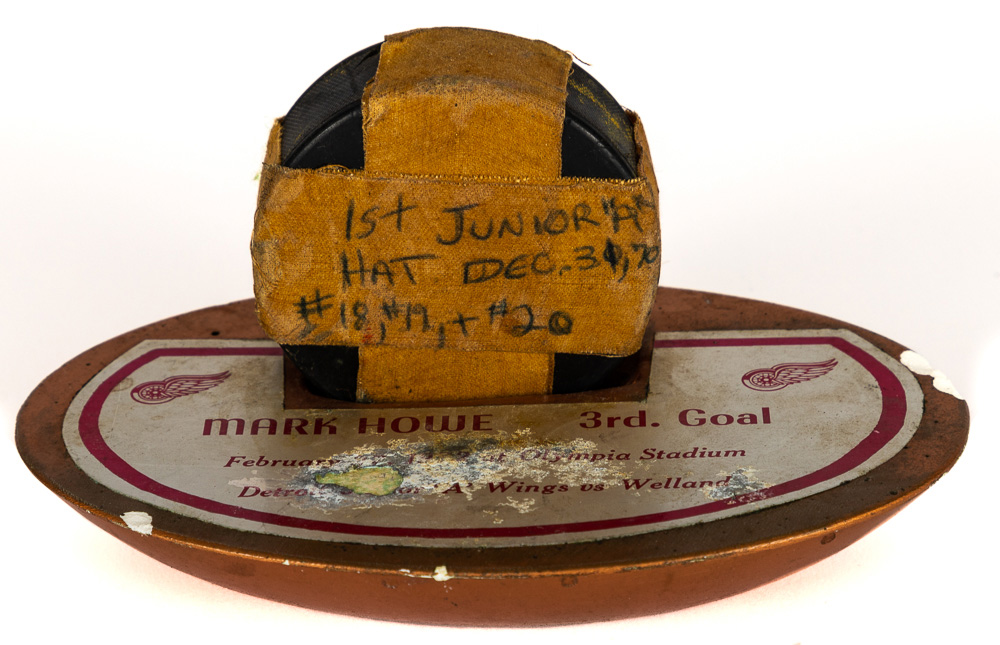 1st JUNIOR "A"
HAT. DEC. 30, 70
#18, #19, + #20
MARK HOWE 3rd. Goal
at Olympia Stadium
'A' Wings vs Welland